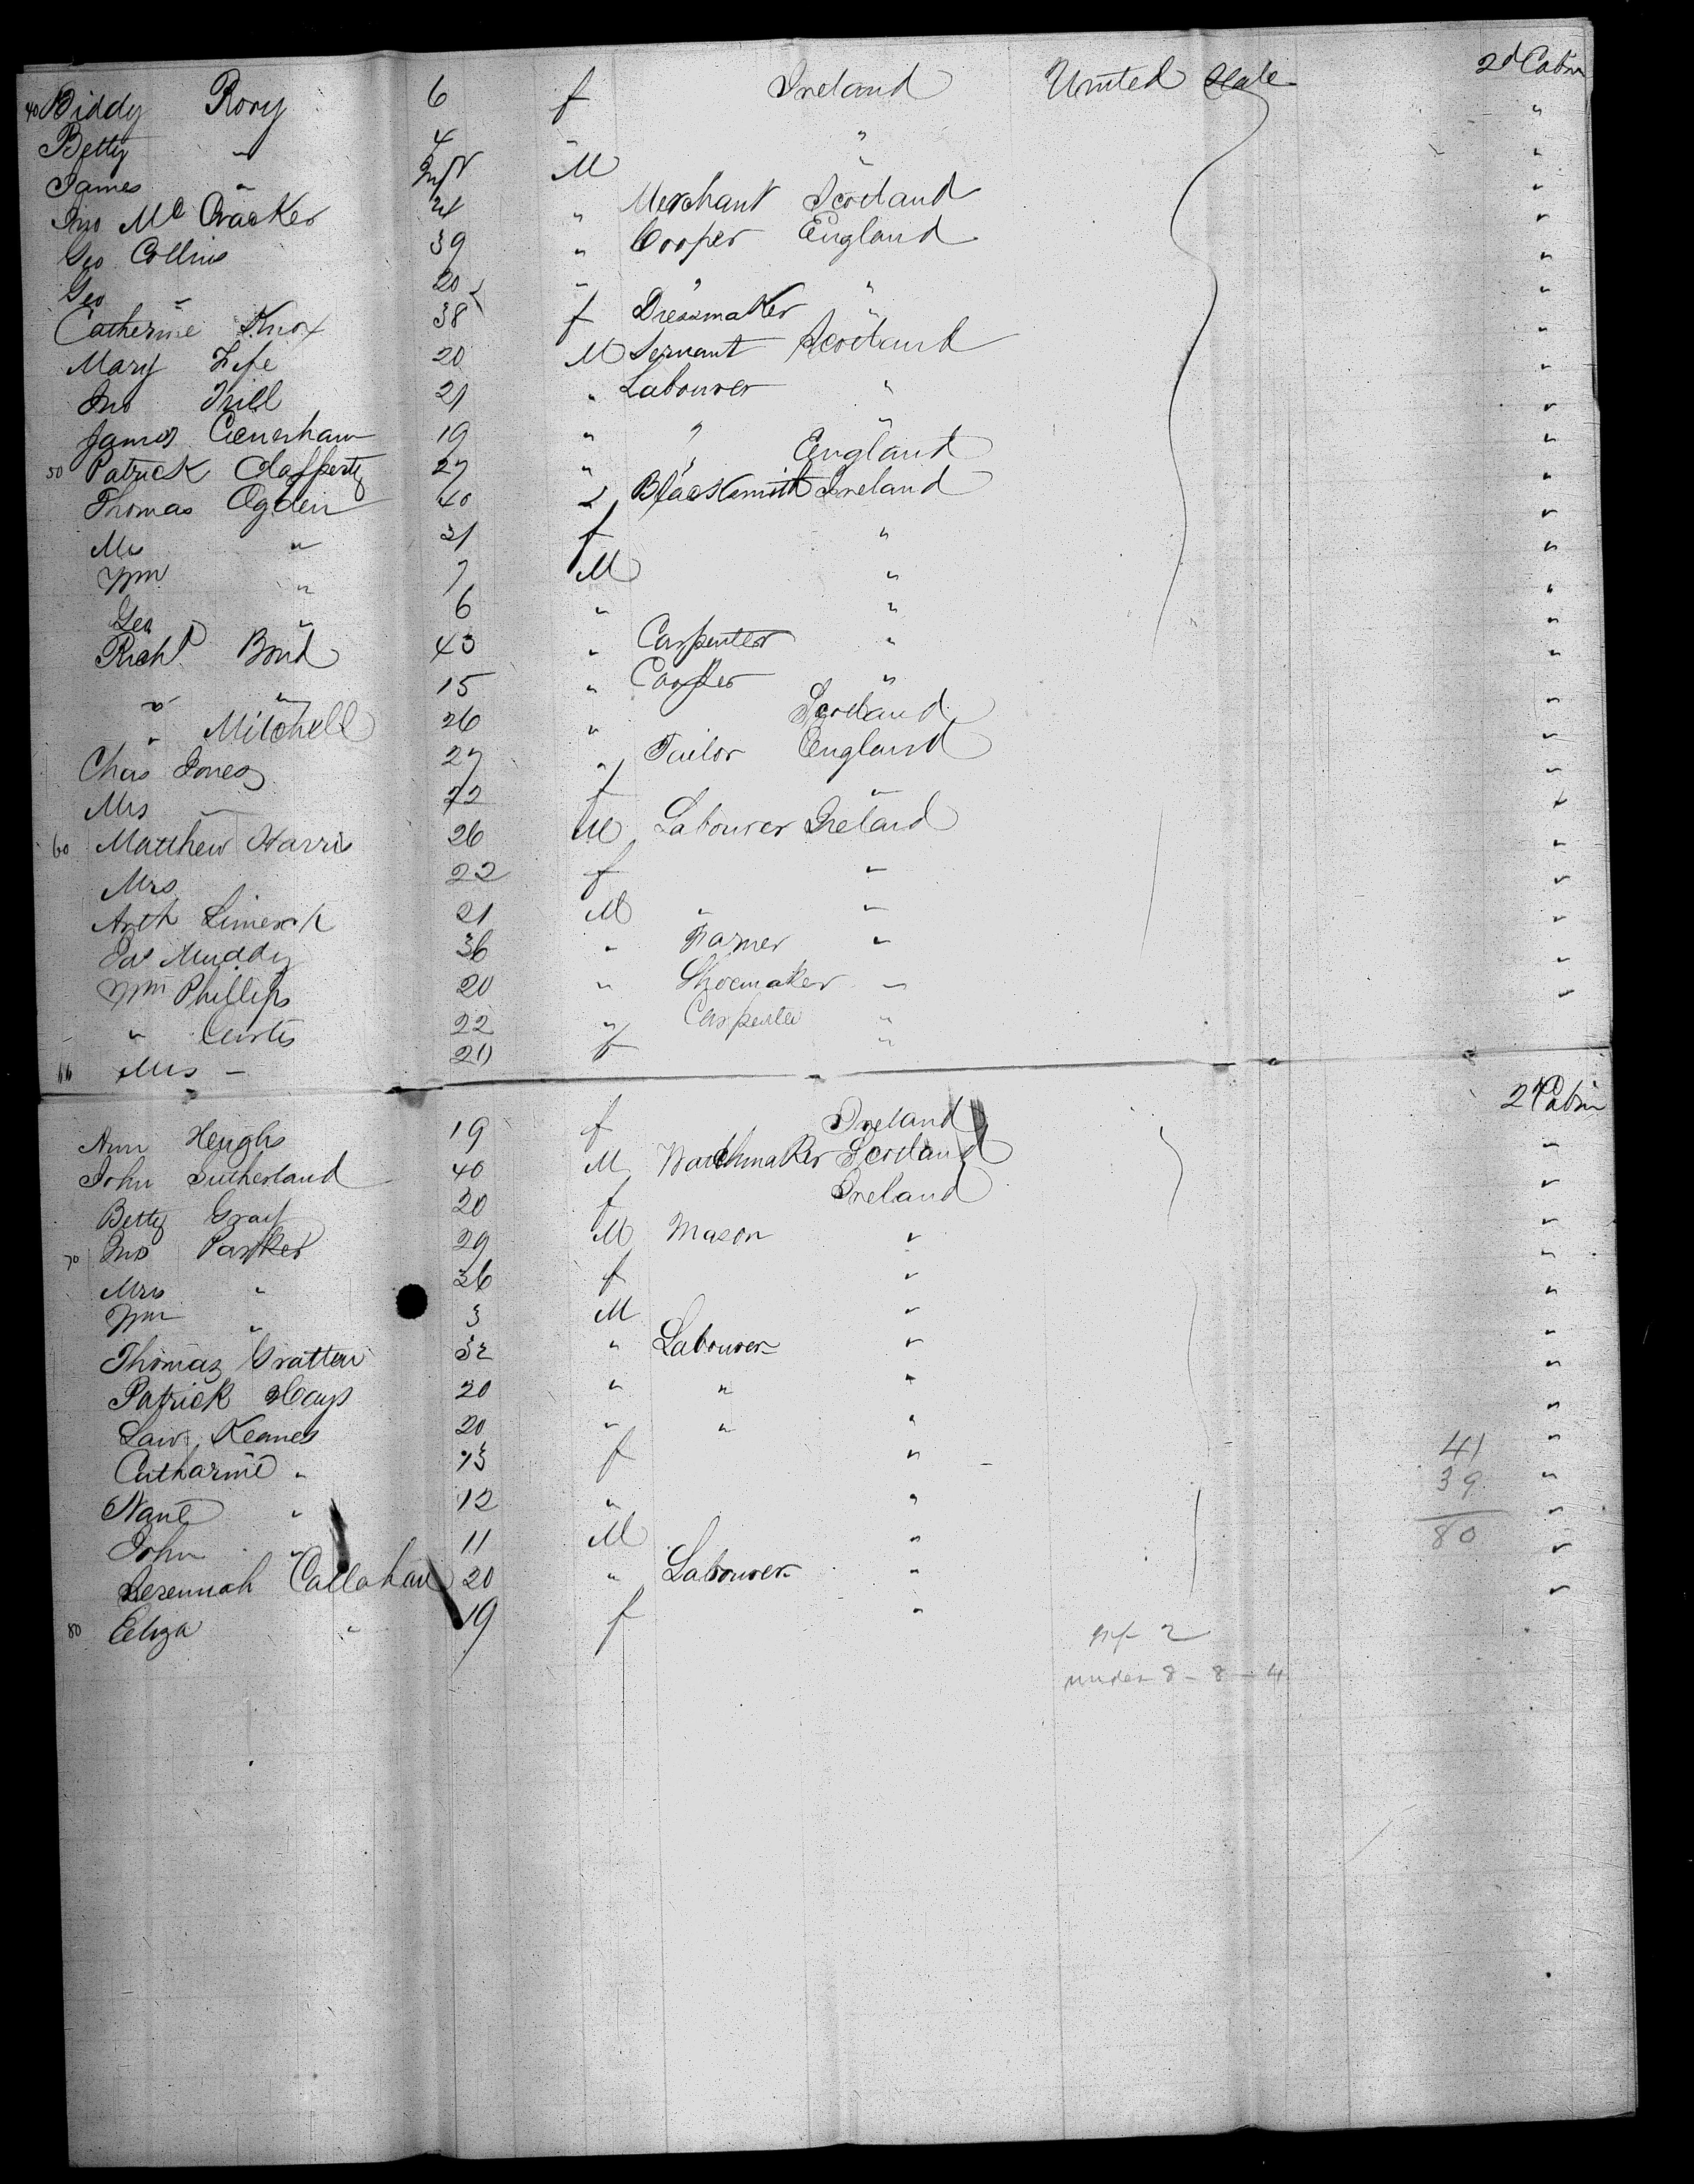 40 Biddy Rory 6 f Ireland United State 2d Cabin
Betty " 4 " " "
James " Inft M " "
Jno Mc Cracker 21 " Merchant Scotland "
Geo Collins 39 " Cooper England "
Geo " 20 " " " "
Catherine Knox 38 f Dressmaker "
Mary Fife 20 M Servant Scotland "
Jno Trill 21 " Labourer " "
James 19 " " " "
50 Patrick Clafferty 27 " " England "
Thomas Ogden 40 " Blacksmith Ireland "
Mrs " 31 f " "
Wm " 7 M " "
Geo " 6 " " "
Richd Bond 43 " Carpenter " "
" " 15 " " "
" Mitchell 26 " Scotland "
Chas Jones 27 " Tailor England "
Mrs " 22 f " "
60 Matthew Harris 26 M Labourer Ireland "
Mrs 22 f " "
Arth Limerick 21 M " " "
Jas Muddy 36 " Farmer " "
Wm Phillips 20 " Shoemaker " "
" Curtis 22 " Carpenter " "
66 Mrs " 20 f "
Ann Heughs 19 f Ireland 2d Cabin
John Sutherland 40 M Watchmaker Scotland "
Betty Gray 20 f Ireland "
70 Jno Parker 29 M Mason " "
Mrs " 26 f " "
Wm " 3 M " "
Thomas Gratten 32 " Labourer " "
Patrick Hays 20 " " " "
Law Keanes 20 " " " "
Catharine " 13 f " "
Nane " 12 " " "
John " 11 M " "
Jeremiah Callahan 20 " Labourer " "
80 Eliza " 19 f "
41
39
80
inf 2
under 8 - 8 - 4